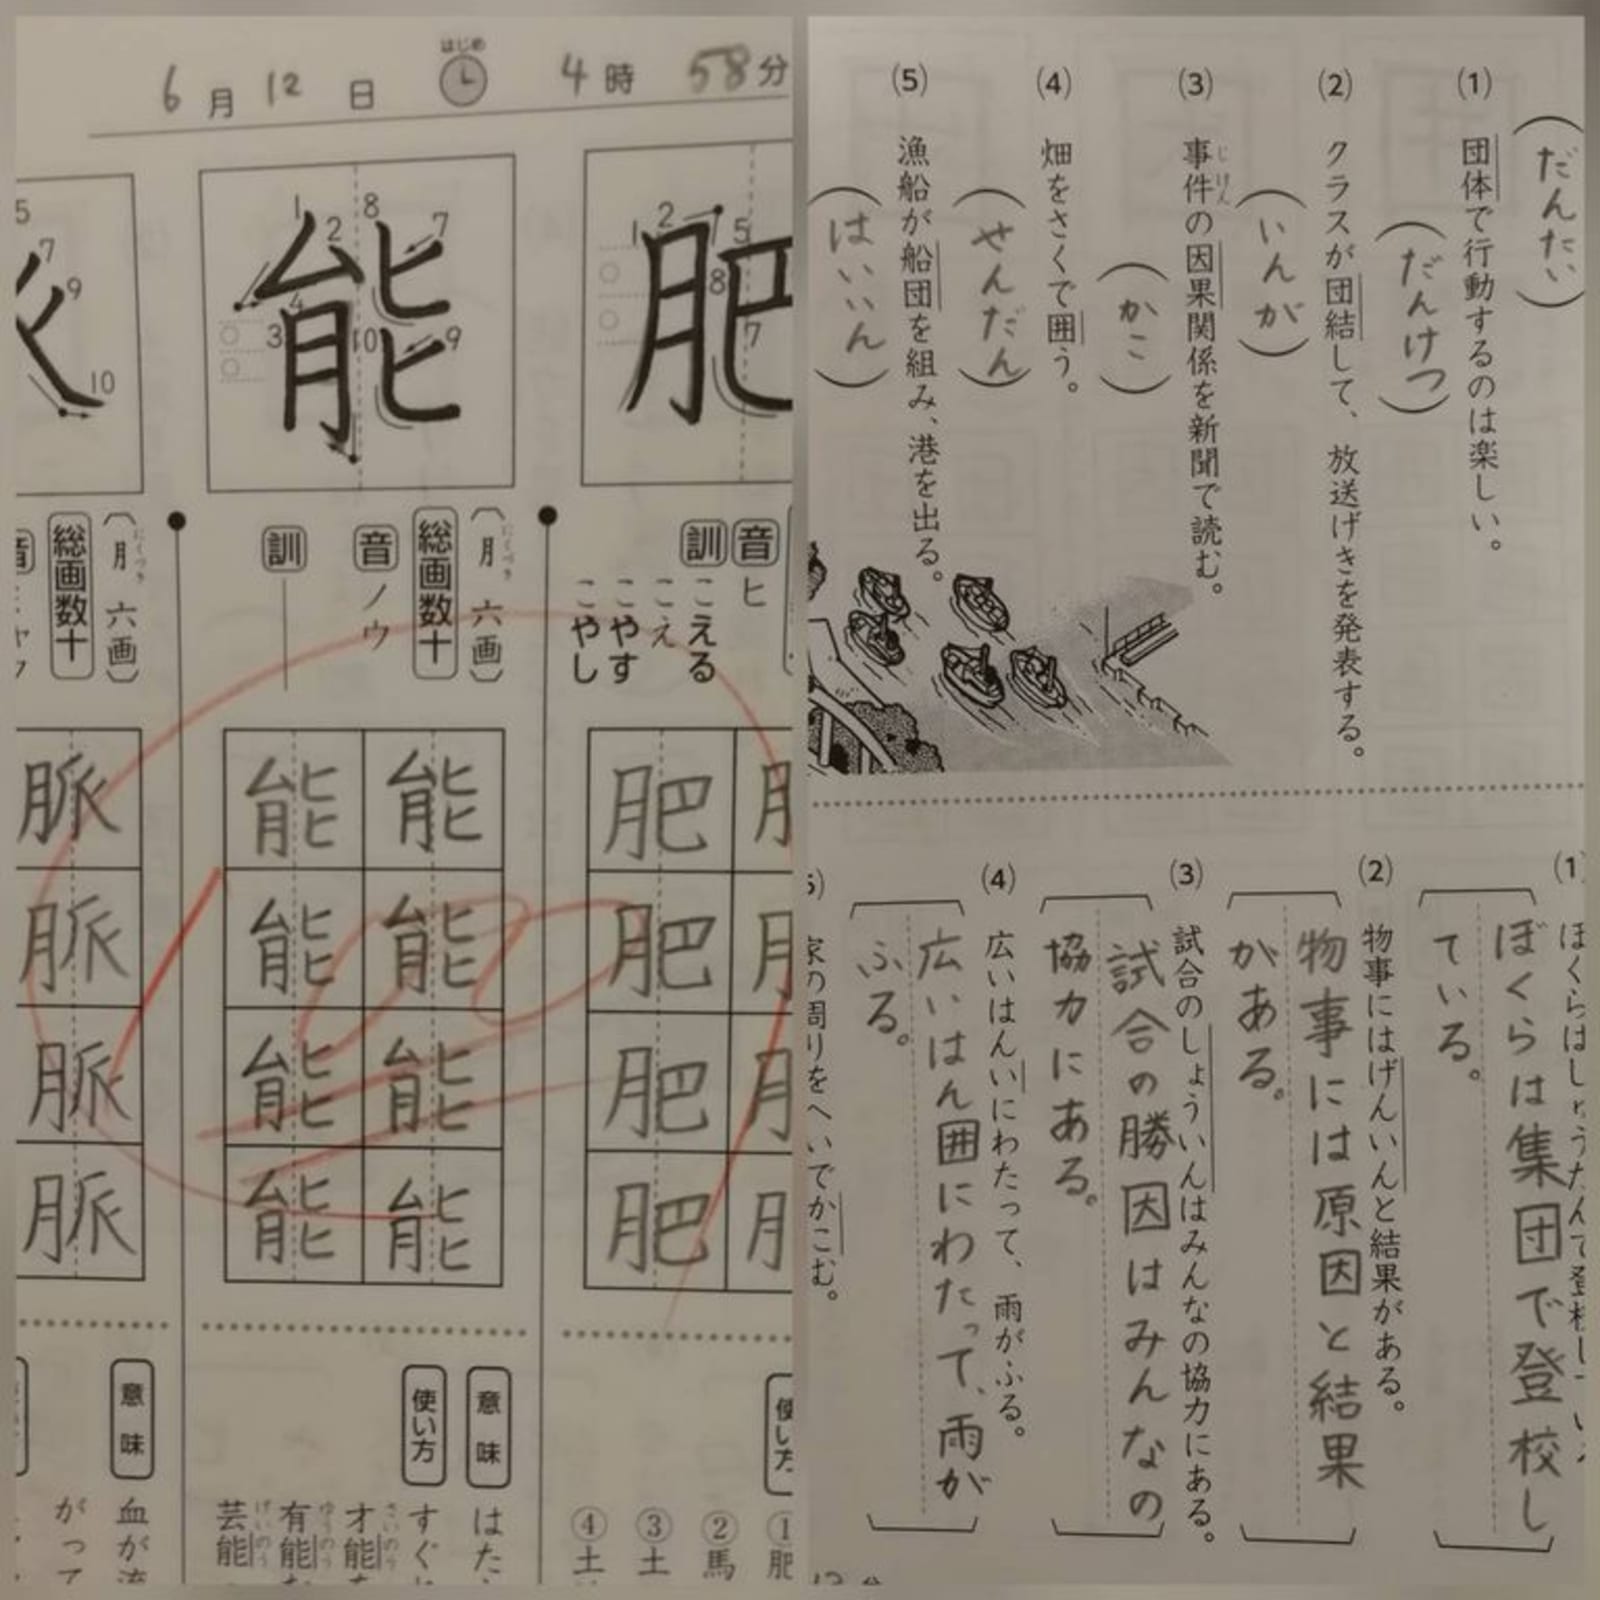 6月12日 はじめ 4時58分
肥
1
2
5
7
8
音 ヒ
訓 こえる
こえ
こやす
こやし
肥
肥
肥
肥
使い方
①肥
②馬
③土
④土
能
1
2
3
4
7
8
9
10
(月 にくづき 六画)
総画数十
音 ノウ
訓
能 能
能 能
能 能
能 能
100
意味
はた
使い方
すぐ
才能 さいのう
有能 ゆうのう
芸能 げいのう
5
7
9
10
(月 にくづき 六画)
総画数十
音
脈
脈
脈
脈
意味
血が流
がって
(1) 団体で行動するのは楽しい。
(だんたい)
(2) クラスが団結して、放送げきを発表する。
(だんけつ)
(3) 事件の因果関係を新聞で読む。
じけん
(いんが)
(4) 畑をさくで囲う。
(かこ)
(5) 漁船が船団を組み、港を出る。
(せんだん)
(はいいん)
(1) ぼくらはしゅうだんで登校している。
ぼくらは集団で登校し
ている。
(2) 物事にはげんいんと結果がある。
物事には原因と結果
がある。
(3) 試合のしょういんはみんなの協力にある。
試合の勝因はみんなの
協力にある。
(4) 広いはんいにわたって、雨がふる。
広いはん囲にわたって、雨が
ふる。
家の周りをへいでかこむ。